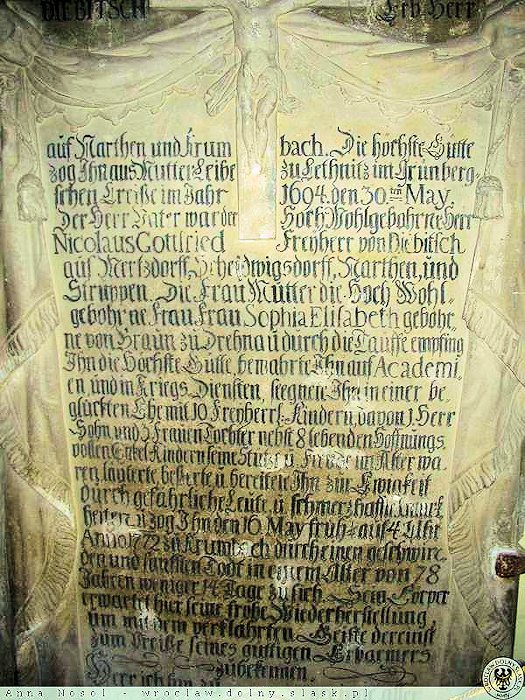 DIEBITSCH Erb Herr
auf Narthen und Krum bach. Die höchste Gütte
zog Ihn aus Mutter Leibe zu Lethnitz im Grünberg=
schen Creiße im Jahr 1694. den 30.ten May.
Der Herr Vater war der Hoch Wohlgebohrne Herr
Nicolaus Gottfried Freyherr von Diebitsch
auf Mertzdorff, Scheidwigsdorff, Narthen, und
Struppen. Die Frau Mutter die Hoch Wohl=
gebohrne Frau, Frau Sophia Elisabeth gebohr=
ne von Braun zu Drehna ü durch die Tauffe empfing
Ihn die Höchste Gütte, bewahrte Ihn auf Academi=
en und in Kriegs Diensten, seegnete Ihn in einer be=
glückten Ehe mit 10 Freyherrl: Kindern, davon 1 Herr
Sohn, und Frauen Tochter nebst 8 lebenden Hoffnungs
vollen Enkel Kindern seine Stütze u. Freude im Alter wa=
ren, läuterte u bereitete Ihn zur Ewigkeit
durch gefährliche Leute, u schmerzhaffte Kranck=
heiten, u zog Ihn den 16 May früh auf 4 Uhr
Anno 1772 zu durch einen geschwin=
den und sanfften Todt in einem Alter von 78
Jahren weniger 14 Tage zu sich. Sein Cörper
erwartet hier seine frohe Wiederherstellung
um mit dem verklährten Geiste dereinst
zum Preiße seines gütigen Erbarmers
zubekennen.
Herr ich bin zu
Anna Nosol - wroclaw.dolny.slask.pl